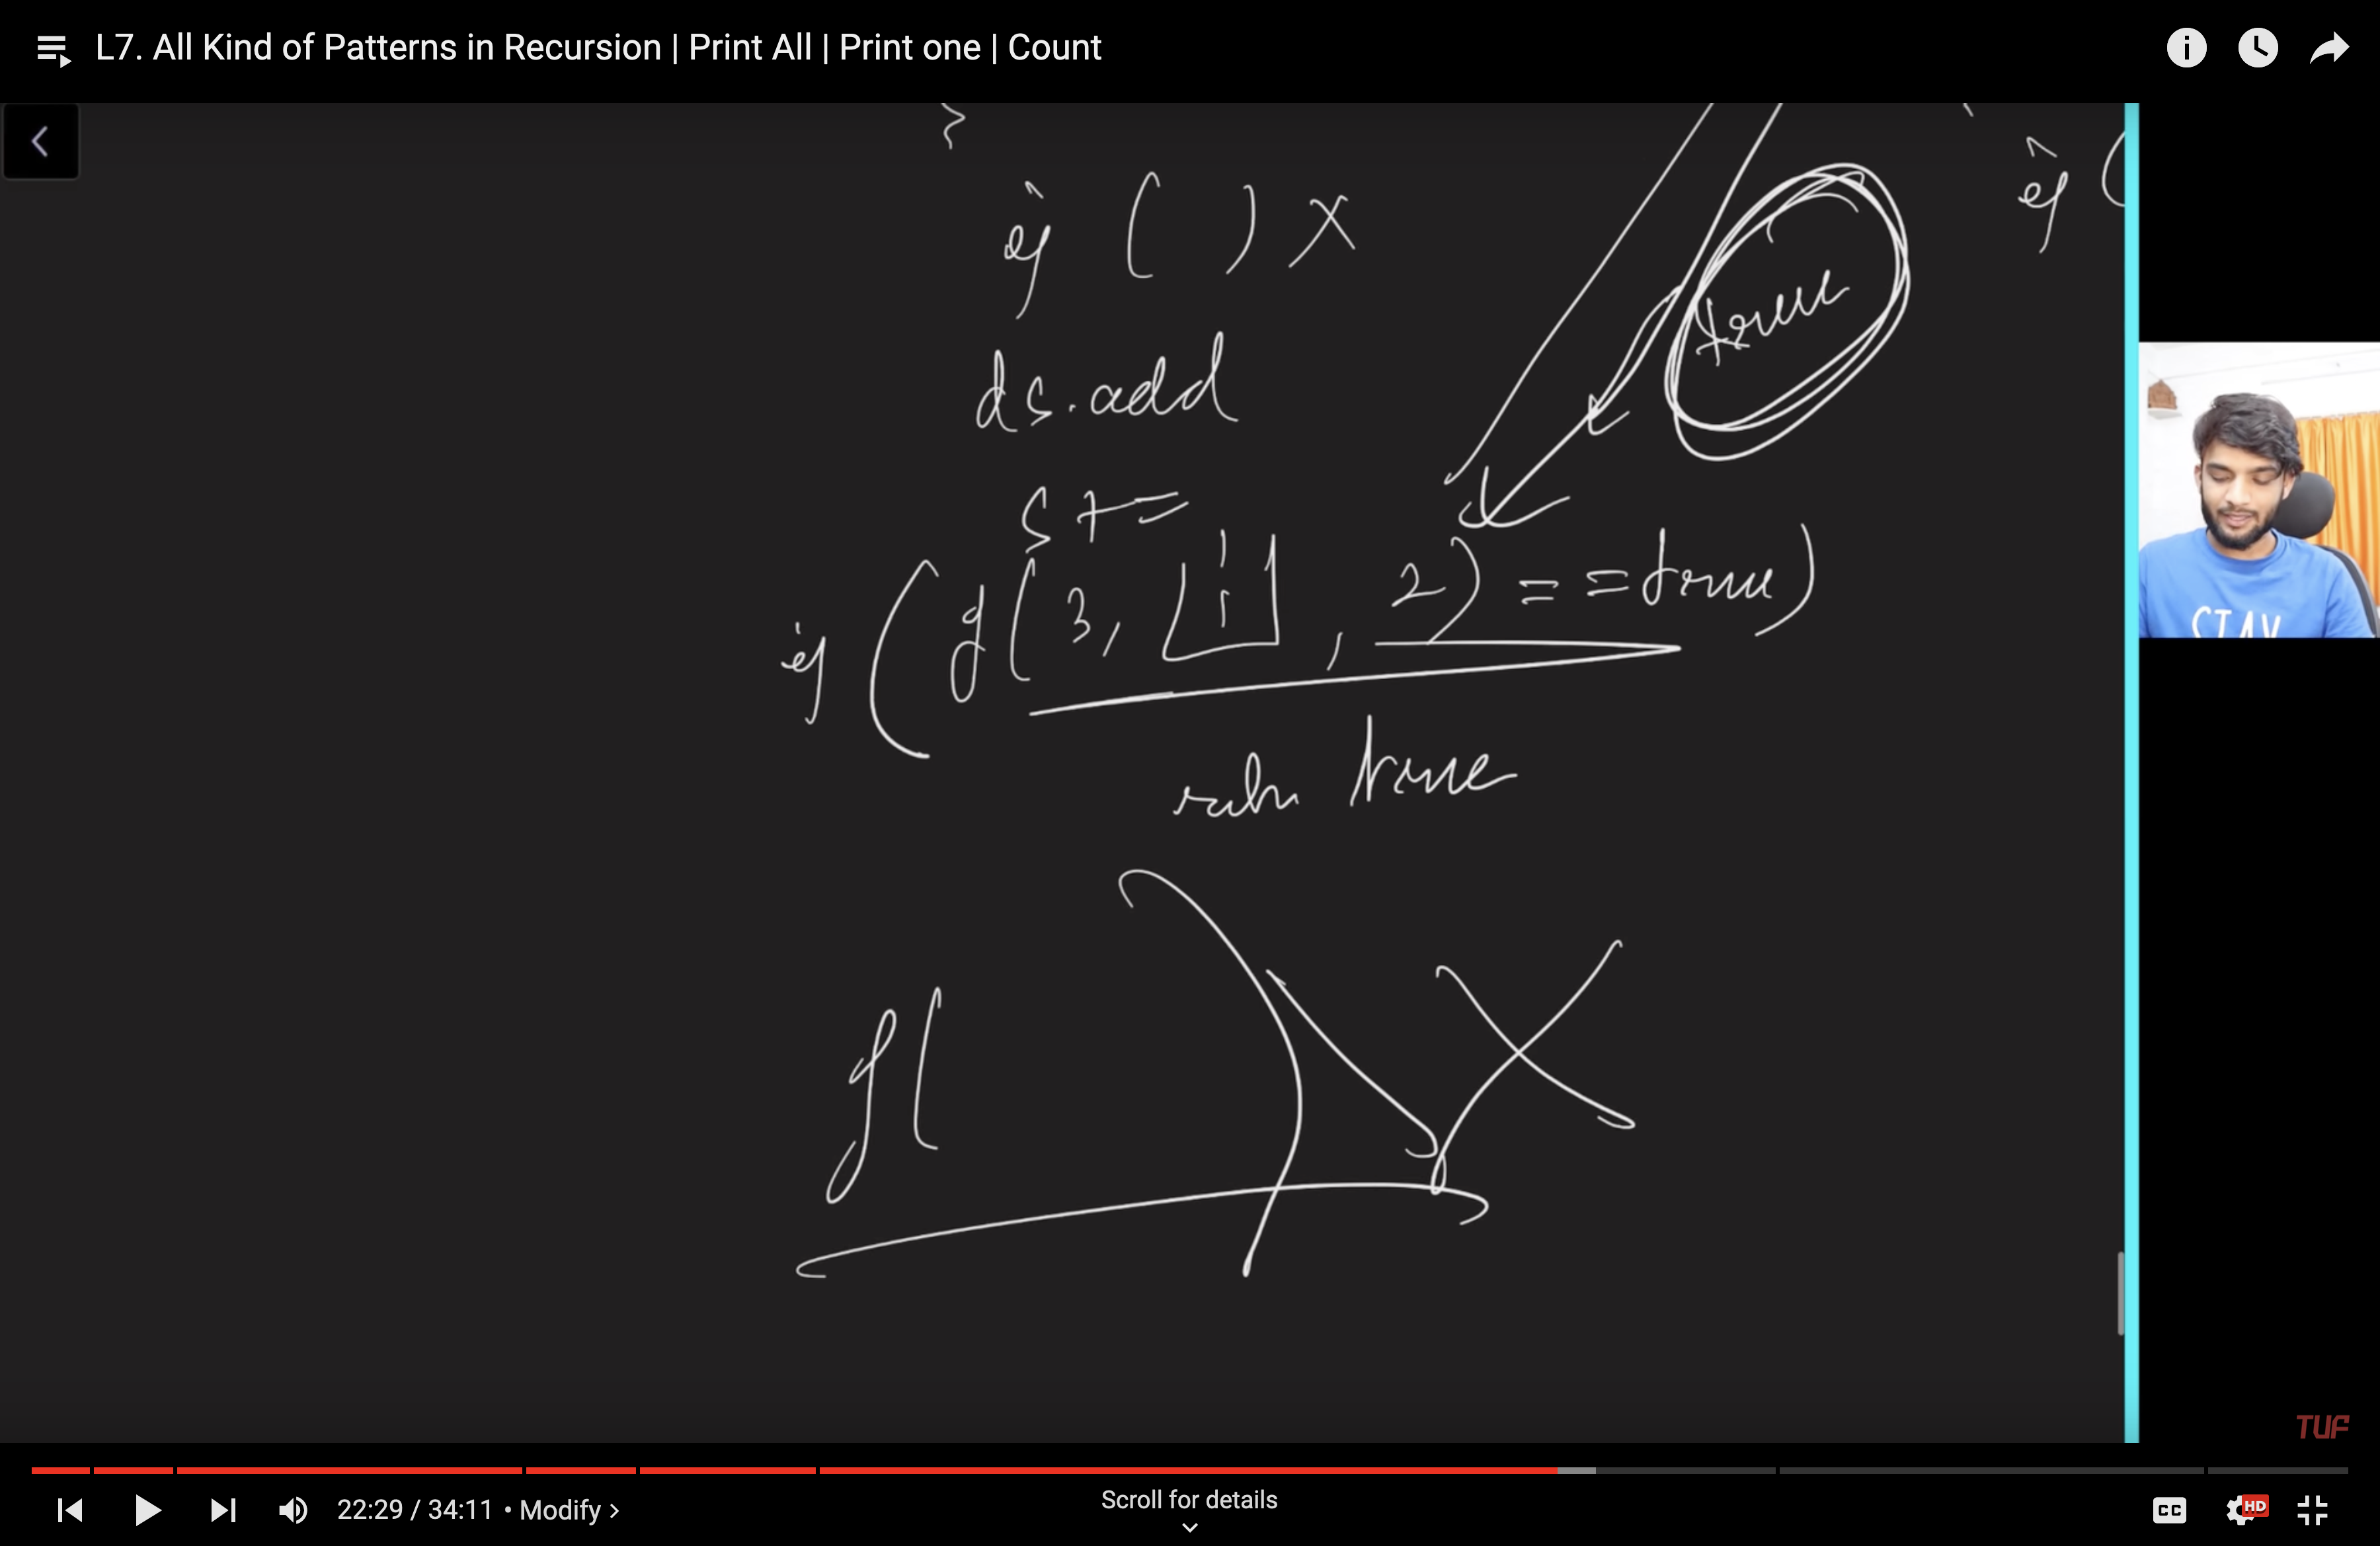 L7. All Kind of Patterns in Recursion | Print All | Print one | Count
}
if ( ) X
if (
true
ds.add
s +=
if ( f( 3, [1 1], 2) == true)
return true
f( )
STAY
TUF
22:29 / 34:11 • Modify >
Scroll for details
CC
HD